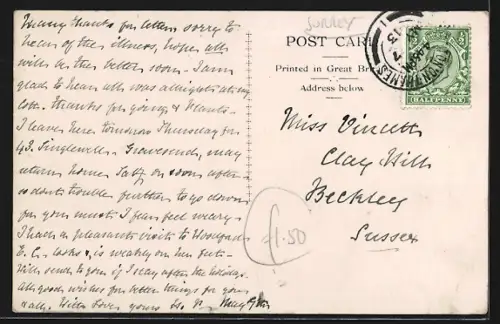 Many thanks for letters sorry to
hear of the illness, hope all
will be the better soon - I am
glad to hear all was alright at
thanks for going &
I leave here tomorrow Thursday for
Singlewell Gravesend, may
return home Saty or soon after
so dont trouble further to go down
for you must I fear feel weary -
I had a pleasant visit to
E. C. looks & is weakly on her feet -
Will send to you if I stay after the holiday.
All good wishes for better things for you
& all. With Love yours
SURREY
POST CARD
Printed in Great Br
Address below
THAMES
13
HALFPENNY
Miss Vincett
Clay Hill
Beckley
Sussex
£1.50